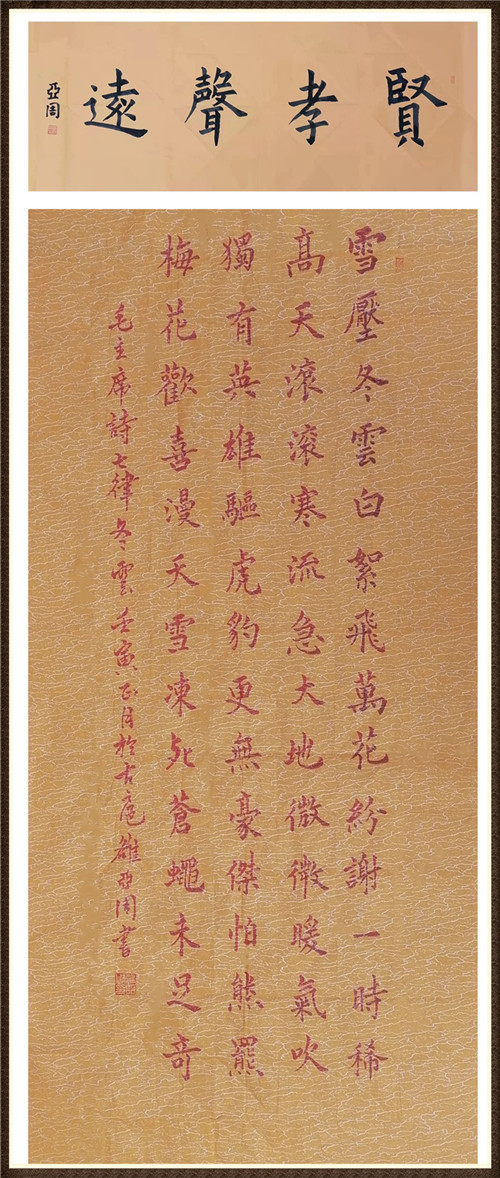 賢孝聲遠
亞周
雪壓冬雲白絮飛萬花紛謝一時稀
髙天滾滾寒流急大地微微暖氣吹
獨有英雄驅虎豹更無豪傑怕熊羆
梅花歡喜漫天雪凍死蒼蠅未足奇
毛主席詩七律冬雲壬寅正月於古扈雒亞周書